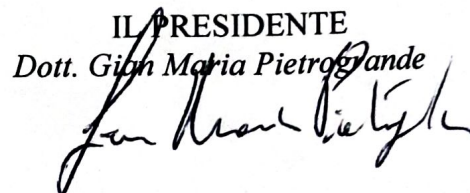 IL PRESIDENTE
Dott. Gian Maria Pietrogrande
Gian Maria Pietrogrande